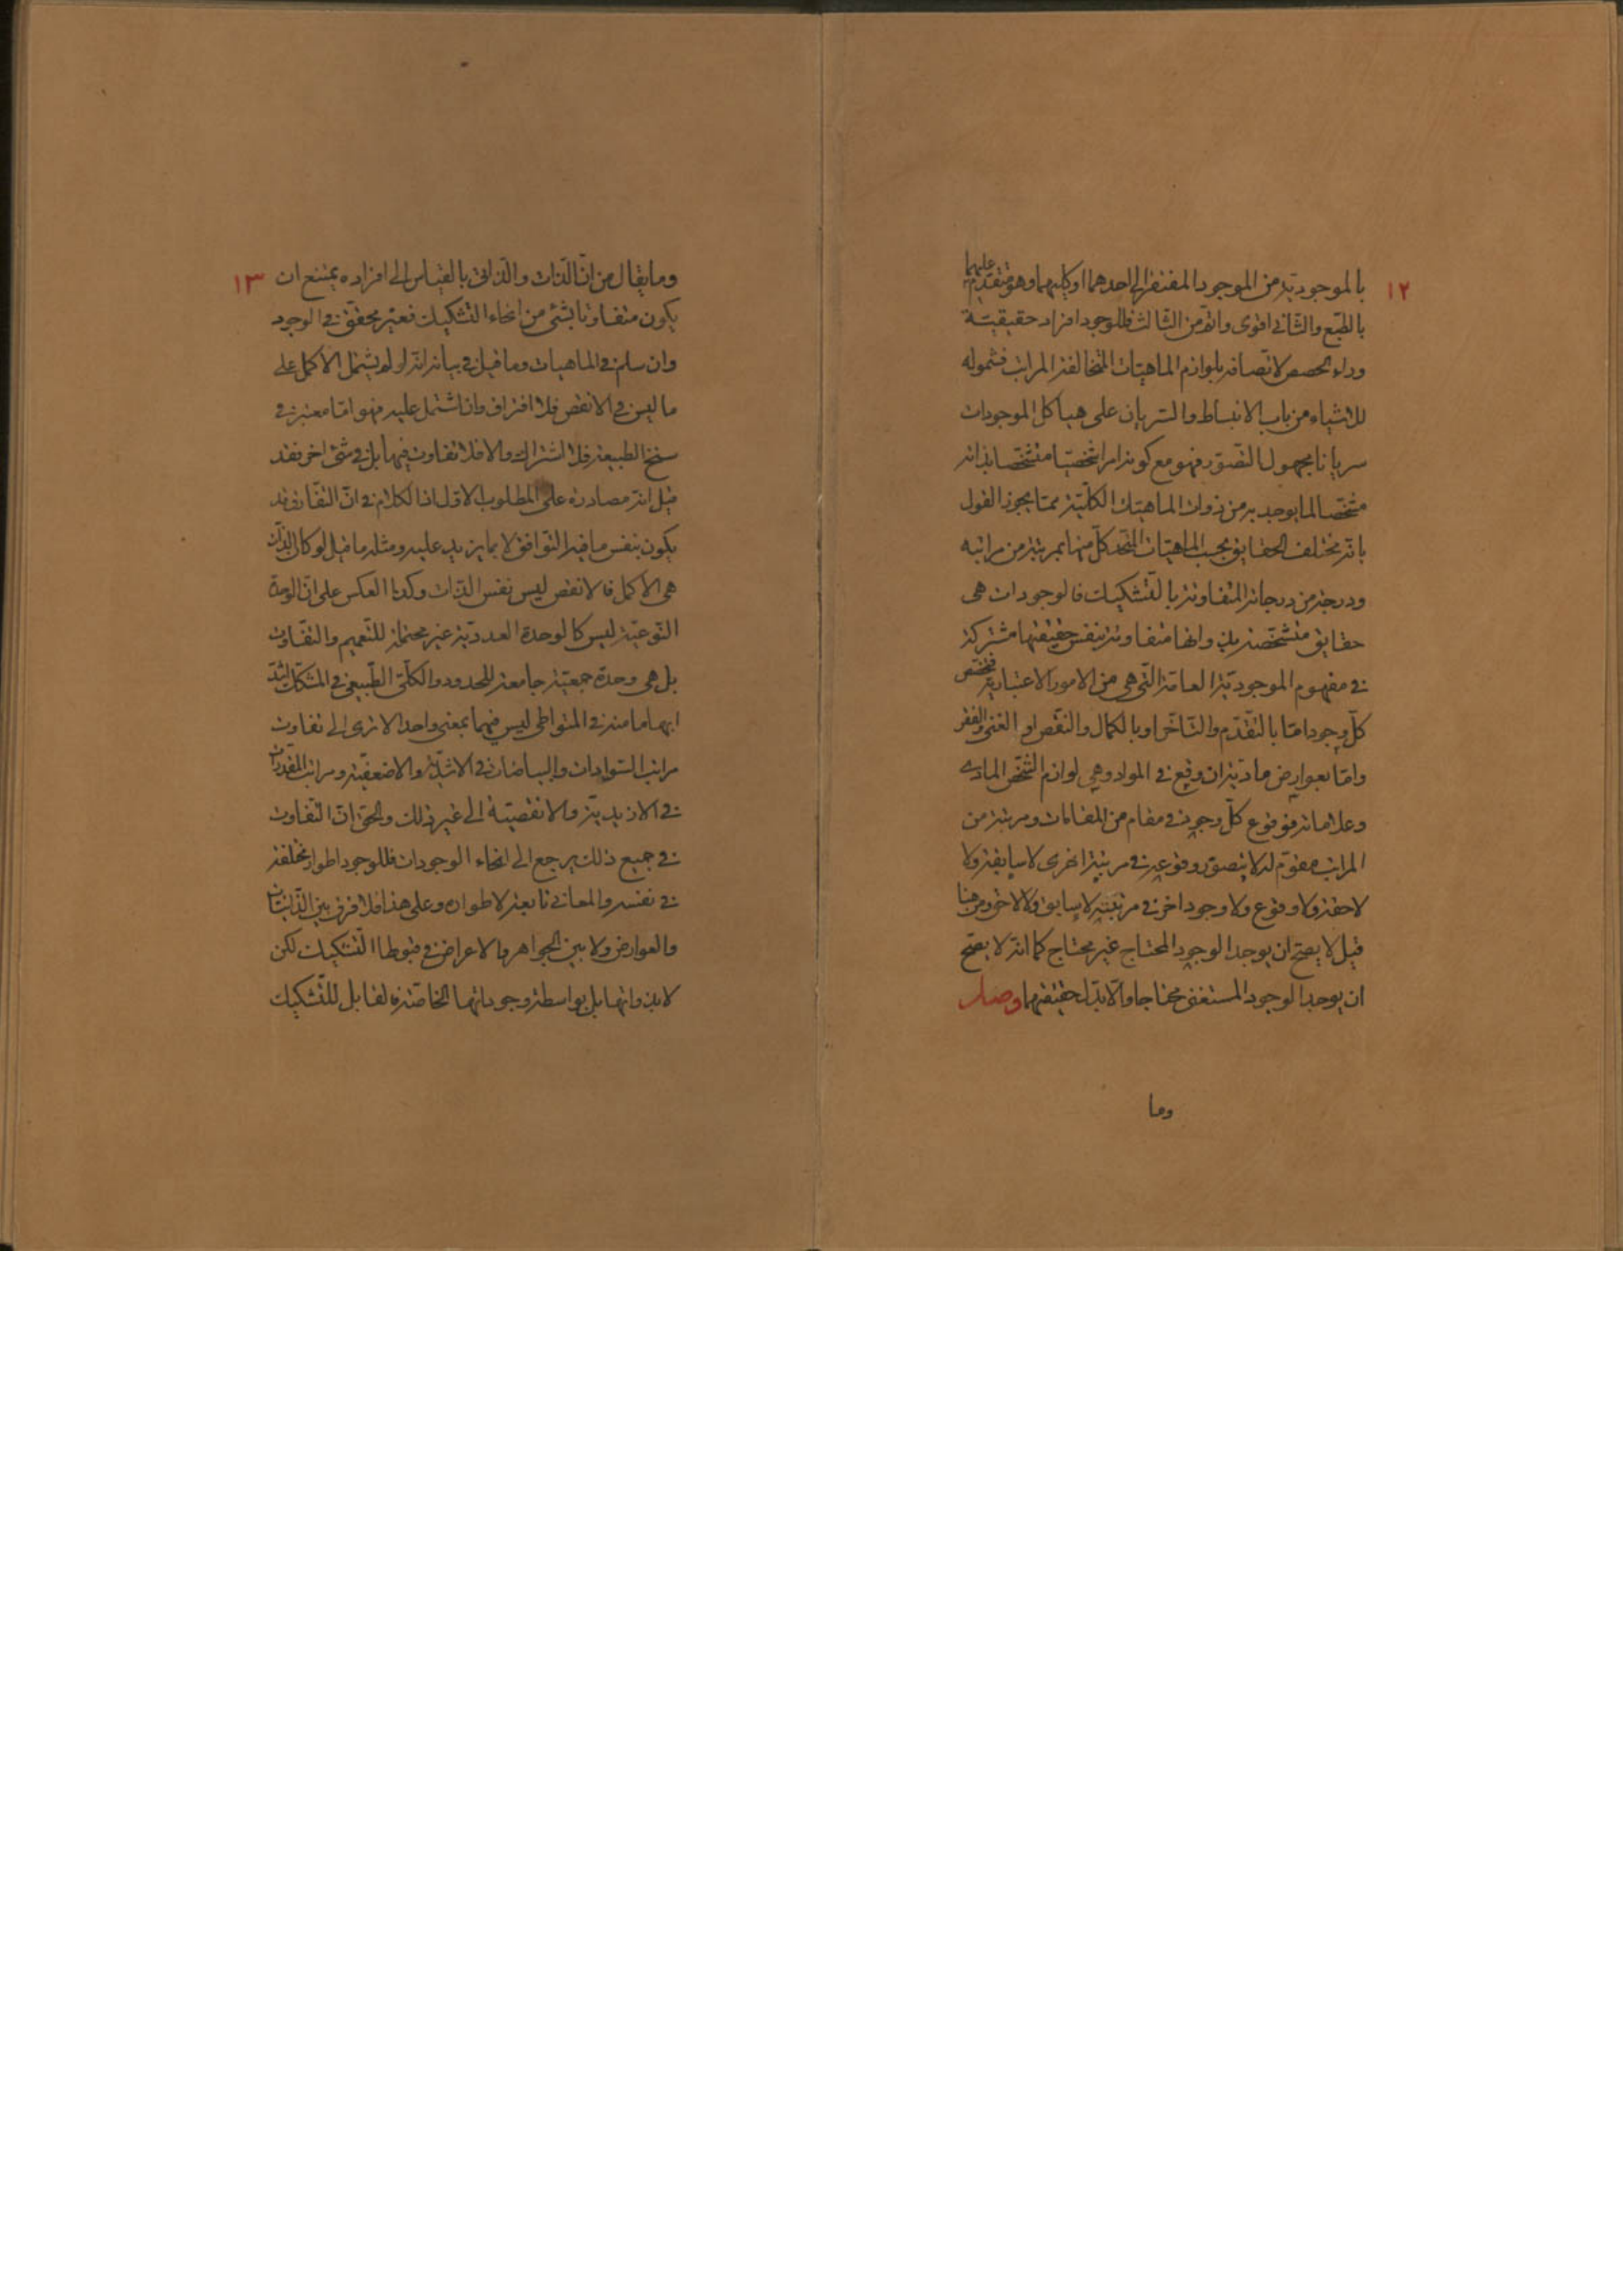 ١٢
بالموجودية من الموجود المفتقر الى احدهما او كليهما وهو متقدم عليهما
بالطبع والثاني اقوى واتم من الثالث فللوجود افراد حقيقية
وراء الحصص لاتصافه بلوازم الماهيات المتخالفة المراتب فشموله
للاشياء من باب الانبساط والسريان على هياكل الموجودات
سريانا مجهول التصور فهو مع كونه امرا شخصيا متشخصا بذاته
مشخصا لما يوجد به من ذوات الماهيات الكلية مما يجوز القول
بانه مختلف الحقايق بحسب الماهيات المتحد كل منها بمرتبة من مراتبه
ودرجة من درجاته المتفاوتة بالتشكيك فالوجودات هى
حقايق متشخصة بذواتها متفاوتة بنفس حقيقتها مشتركة
في مفهوم الموجودية العامة التي هي من الامور الاعتبارية فتخصص
كل وجود اما بالتقدم والتاخر او بالكمال والنقص او الغنى والفقر
واما بعوارض مادية ان وقع في المواد وهي لوازم الشخص المادي
وعلاماته فوقوع كل وجود في مقام من المقامات ومرتبة من
المراتب مقوم له لا يتصور وقوعه في مرتبة اخرى لا سابقة ولا
لاحقة ولا وقوع ولا وجود اخر في مرتبته لا سابق ولا لاحق ومن هنا
قيل لا يصح ان يوجد الوجود المحتاج غير محتاج كما انه لا يصح
ان يوجد الوجود المستغنى محتاجا والا تبدل حقيقتهما وصل
وما
١٣
وما يقال من ان الذات والذاتي بالقياس الى افراده يمتنع ان
يكون متفاوتا بشئ من انحاء التشكيك فغير محقق في الوجود
وان سلم في الماهيات وما قيل في بيانه انه لو لم يشتمل الاكمل على
ما ليس في الانقص فلا افتراق وان اشتمل عليه فهو اما معتبر في
سنخ الطبيعة فلا اشتراك والا فلا تفاوت فيها بل في شئ اخر فقد
قيل انه مصادرة على المطلوب الاول اذ الكلام في ان التفارق قد
يكون بنفس ما فيه التوافق لا بما يزيد عليه ومثله ما قيل لو كان الذات
هي الاكمل فالانقص ليس نفس الذات وكذا العكس على ان الوحدة
النوعية ليس كالوحدة العددية غير محتملة للتعميم والتفاوت
بل هي وحدة جمعية جامعة للحدود والكلي الطبيعي في المشكك اشد
ابهاما منه في المتواطي ليس فيهما بمعنى واحد الا ترى الى تفاوت
مراتب السوادات والبياضات في الاشدية والاضعفية ومراتب المقدارات
في الازيدية والانقصية الى غير ذلك والحق ان التفاوت
في جميع ذلك يرجع الى انحاء الوجودات فللوجود اطوار مختلفة
في نفسه والمعاني تابعة لاطواره وعلى هذا فلا فرق بين الذاتيات
والعوارض ولا بين الجواهر والاعراض في قبولها التشكيك لكن
لا بذواتها بل بواسطة وجوداتها الخاصة فالقابل للتشكيك